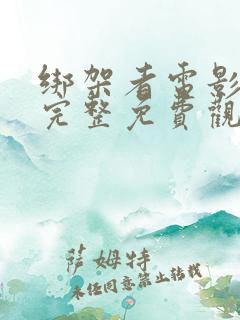 绑架者电影
完整免費觀
萨姆特
未经同意禁止转载